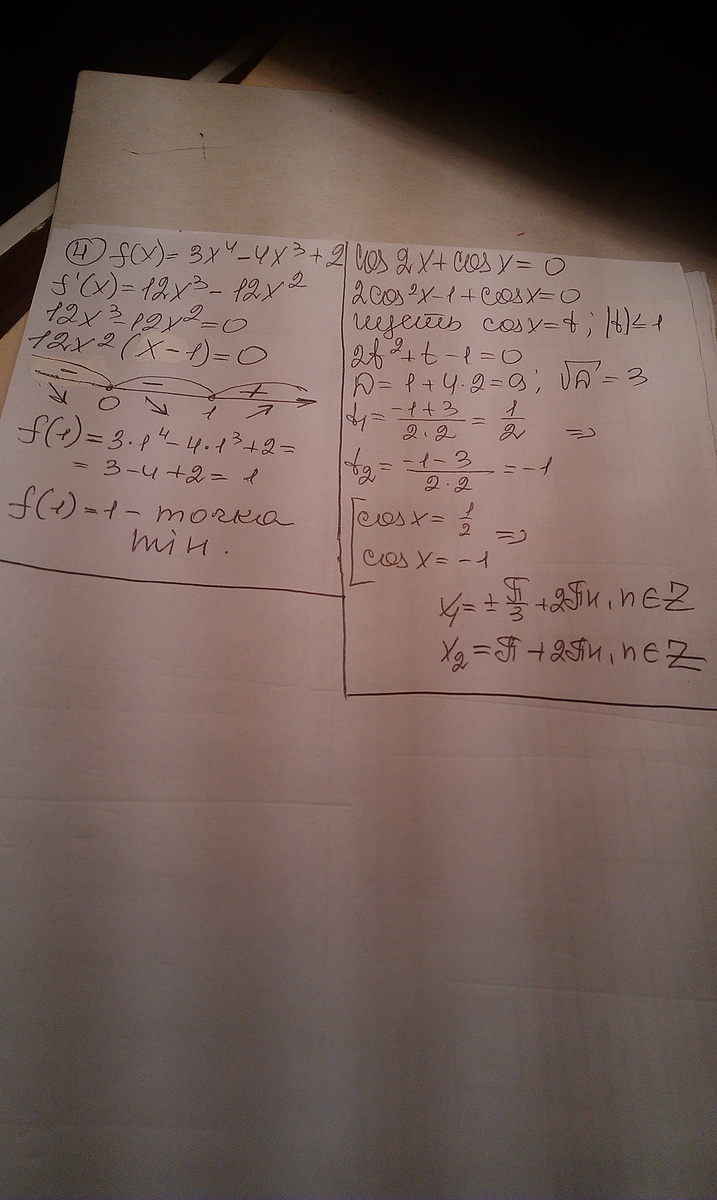 ④ f(x) = 3x⁴ - 4x³ + 2
f'(x) = 12x³ - 12x²
12x³ - 12x² = 0
12x² (x - 1) = 0
- - +
0 1
f(1) = 3·1⁴ - 4·1³ + 2 =
= 3 - 4 + 2 = 1
f(1) = 1 - точка
min.
cos 2x + cos x = 0
2cos²x - 1 + cos x = 0
пусть cos x = t ; |t| ≤ 1
2t² + t - 1 = 0
D = 1 + 4·2 = 9 ; √D = 3
t₁ = (-1+3)/(2·2) = 1/2 =>
t₂ = (-1-3)/(2·2) = -1
[cos x = 1/2 =>
cos x = -1
x₁ = ± π/3 + 2πn, n ∈ Z
x₂ = π + 2πn, n ∈ Z